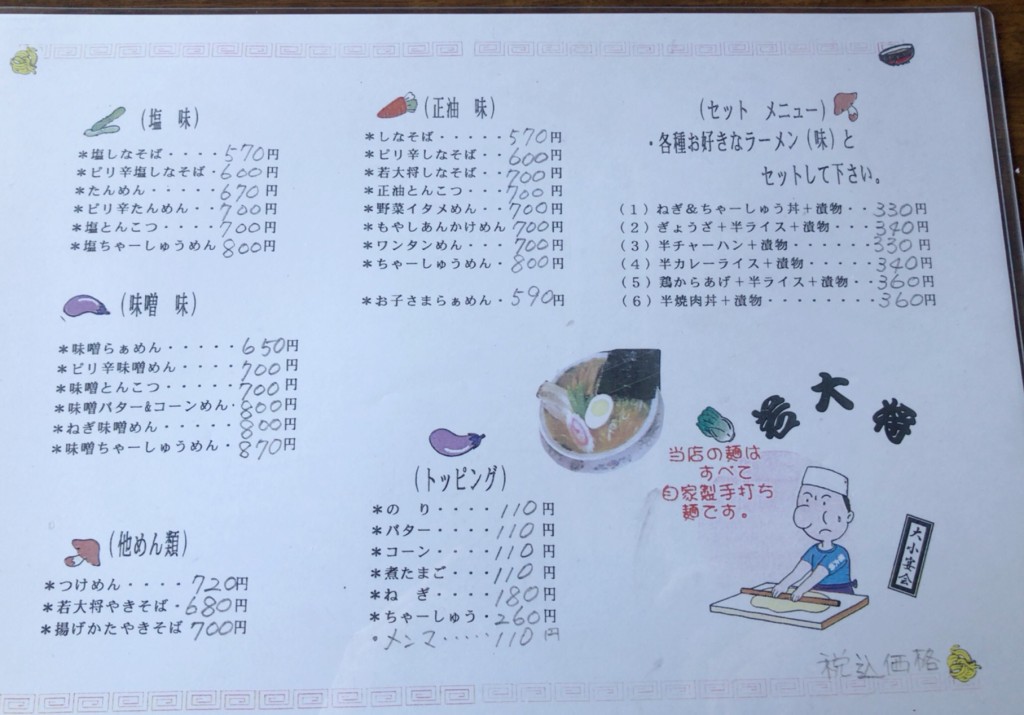 (塩 味)
*塩しなそば・・・・570円
*ピリ辛塩しなそば・600円
*たんめん・・・・・670円
*ピリ辛たんめん・・700円
*塩とんこつ・・・・700円
*塩ちゃーしゅうめん 800円
(味噌 味)
*味噌らぁめん・・・・・650円
*ピリ辛味噌めん・・・・700円
*味噌とんこつ・・・・・700円
*味噌バター&コーンめん・800円
*ねぎ味噌めん・・・・・800円
*味噌ちゃーしゅうめん・・870円
(他めん類)
*つけめん・・・・720円
*若大将やきそば・680円
*揚げかたやきそば 700円
(正油 味)
*しなそば・・・・・570円
*ピリ辛しなそば・・600円
*若大将しなそば・・700円
*正油とんこつ・・・700円
*野菜イタメめん・・700円
*もやしあんかけめん 700円
*ワンタンめん・・・700円
*ちゃーしゅうめん・800円
*お子さまらぁめん・590円
(トッピング)
*の り・・・・110円
*バター・・・・110円
*コーン・・・・110円
*煮たまご・・・110円
*ね ぎ・・・・180円
*ちゃーしゅう・260円
・メンマ・・・・・110円
(セット メニュー)
・各種お好きなラーメン(味)と
セットして下さい。
(1)ねぎ&ちゃーしゅう丼+漬物・・330円
(2)ぎょうざ+半ライス+漬物・・・340円
(3)半チャーハン+漬物・・・・・・330円
(4)半カレーライス+漬物・・・・・340円
(5)鶏からあげ+半ライス+漬物・・360円
(6)半焼肉丼+漬物・・・・・・・・360円
若大将
当店の麺は
すべて
自家製手打ち
麺です。
大小宴会
税込価格